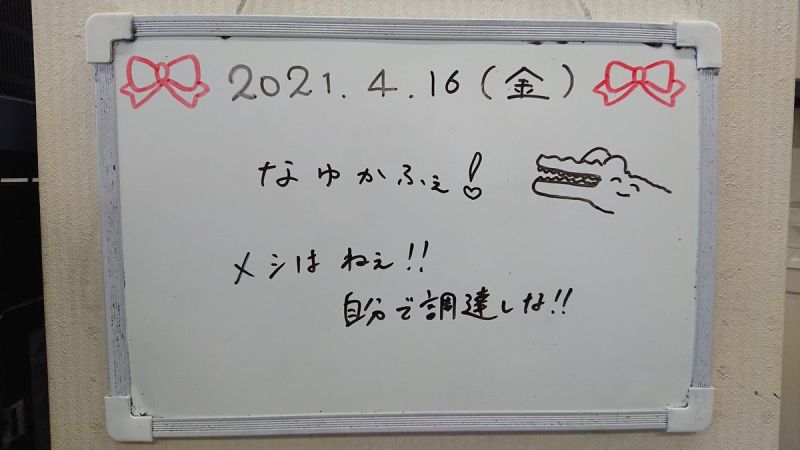 2021.4.16(金)
なゆかふぇ!
メシはねぇ!!
自分で調達しな!!